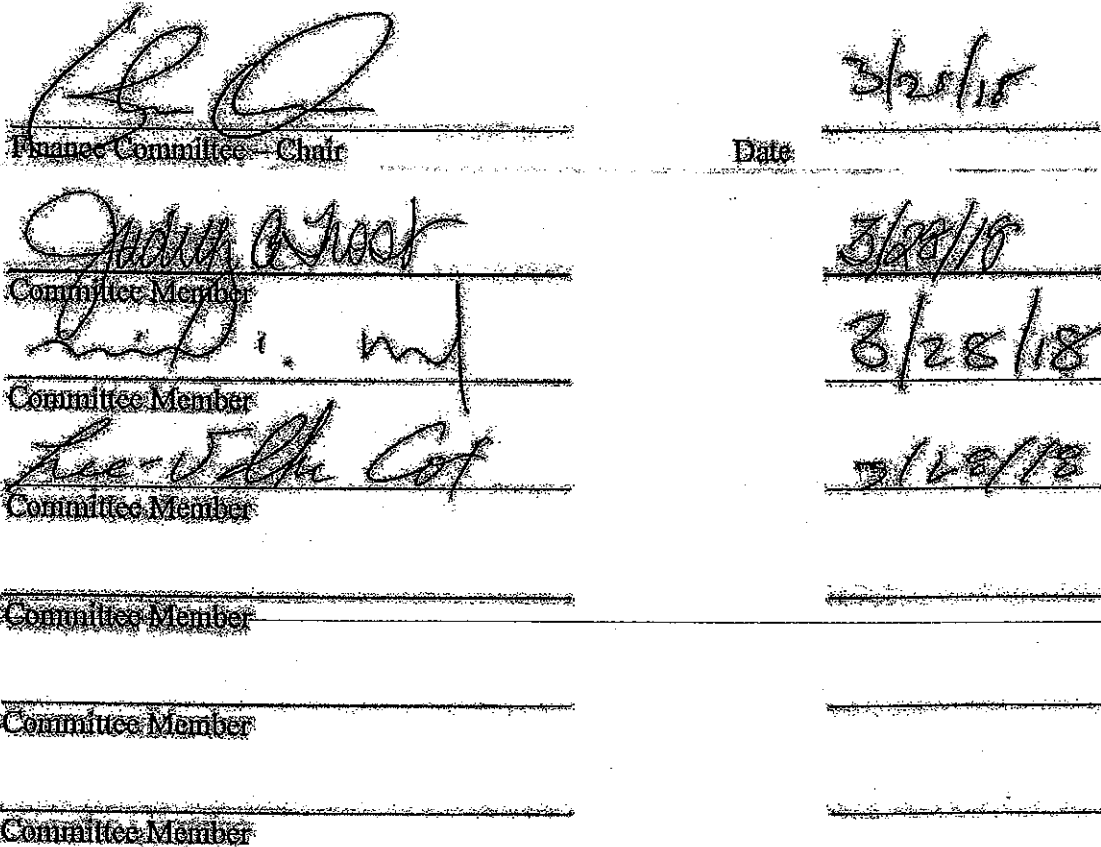 3/28/18
Finance Committee – Chair Date
Judith A Frost 3/28/18
Committee Member
3/28/18
Committee Member
Cox 3/28/18
Committee Member
Committee Member
Committee Member
Committee Member